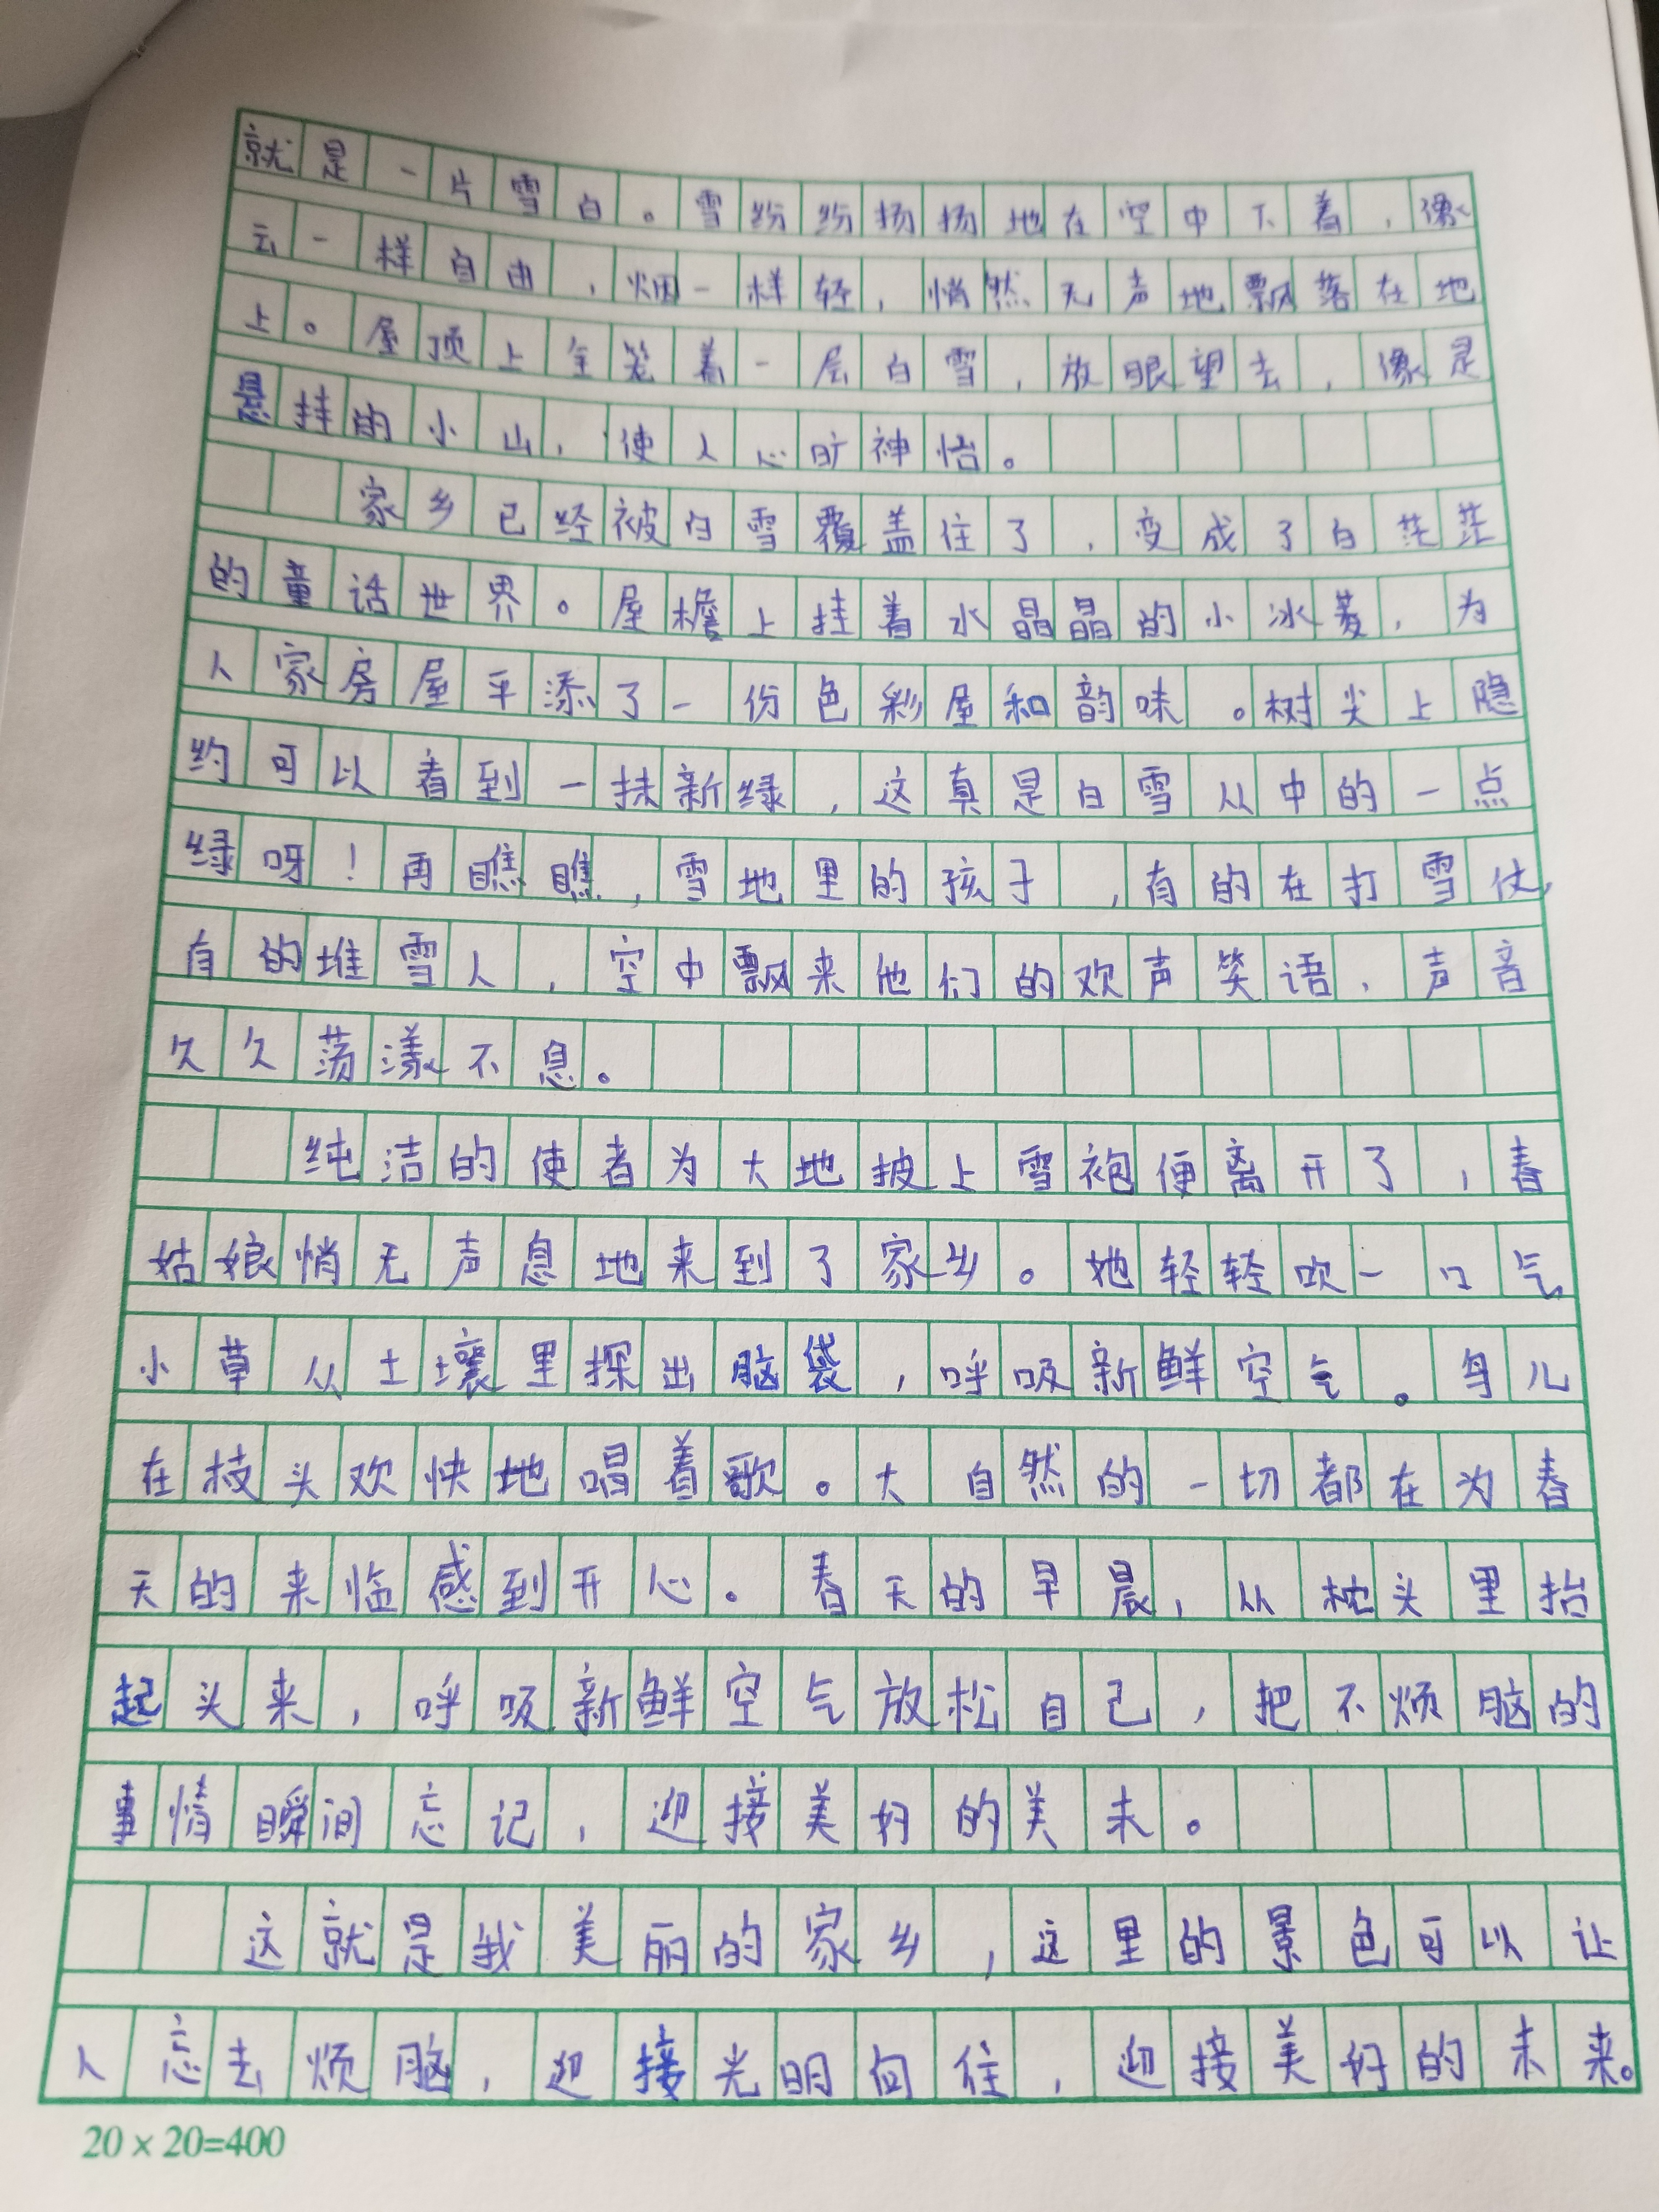 就是一片雪白。雪纷纷扬扬地在空中下着，像
云一样自由，烟一样轻，悄然无声地飘落在地
上。屋顶上全笼着一层白雪，放眼望去，像是
悬挂的小山，使人心旷神怡。
家乡已经被白雪覆盖住了，变成了白茫茫
的童话世界。屋檐上挂着水晶晶的小冰菱，为
人家房屋平添了一份色彩屋和韵味。树尖上隐
约可以看到一抹新绿，这真是白雪从中的一点
绿呀！再瞧瞧，雪地里的孩子，有的在打雪仗，
有的堆雪人，空中飘来他们的欢声笑语，声音
久久荡漾不息。
纯洁的使者为大地披上雪袍便离开了，春
姑娘悄无声息地来到了家乡。她轻轻吹一口气
小草从土壤里探出脑袋，呼吸新鲜空气。鸟儿
在枝头欢快地唱着歌。大自然的一切都在为春
天的来临感到开心。春天的早晨，从枕头里抬
起头来，呼吸新鲜空气放松自己，把不烦脑的
事情瞬间忘记，迎接美好的美未。
这就是我美丽的家乡，这里的景色可以让
人忘去烦脑，迎接光明向往，迎接美好的未来。
20×20=400